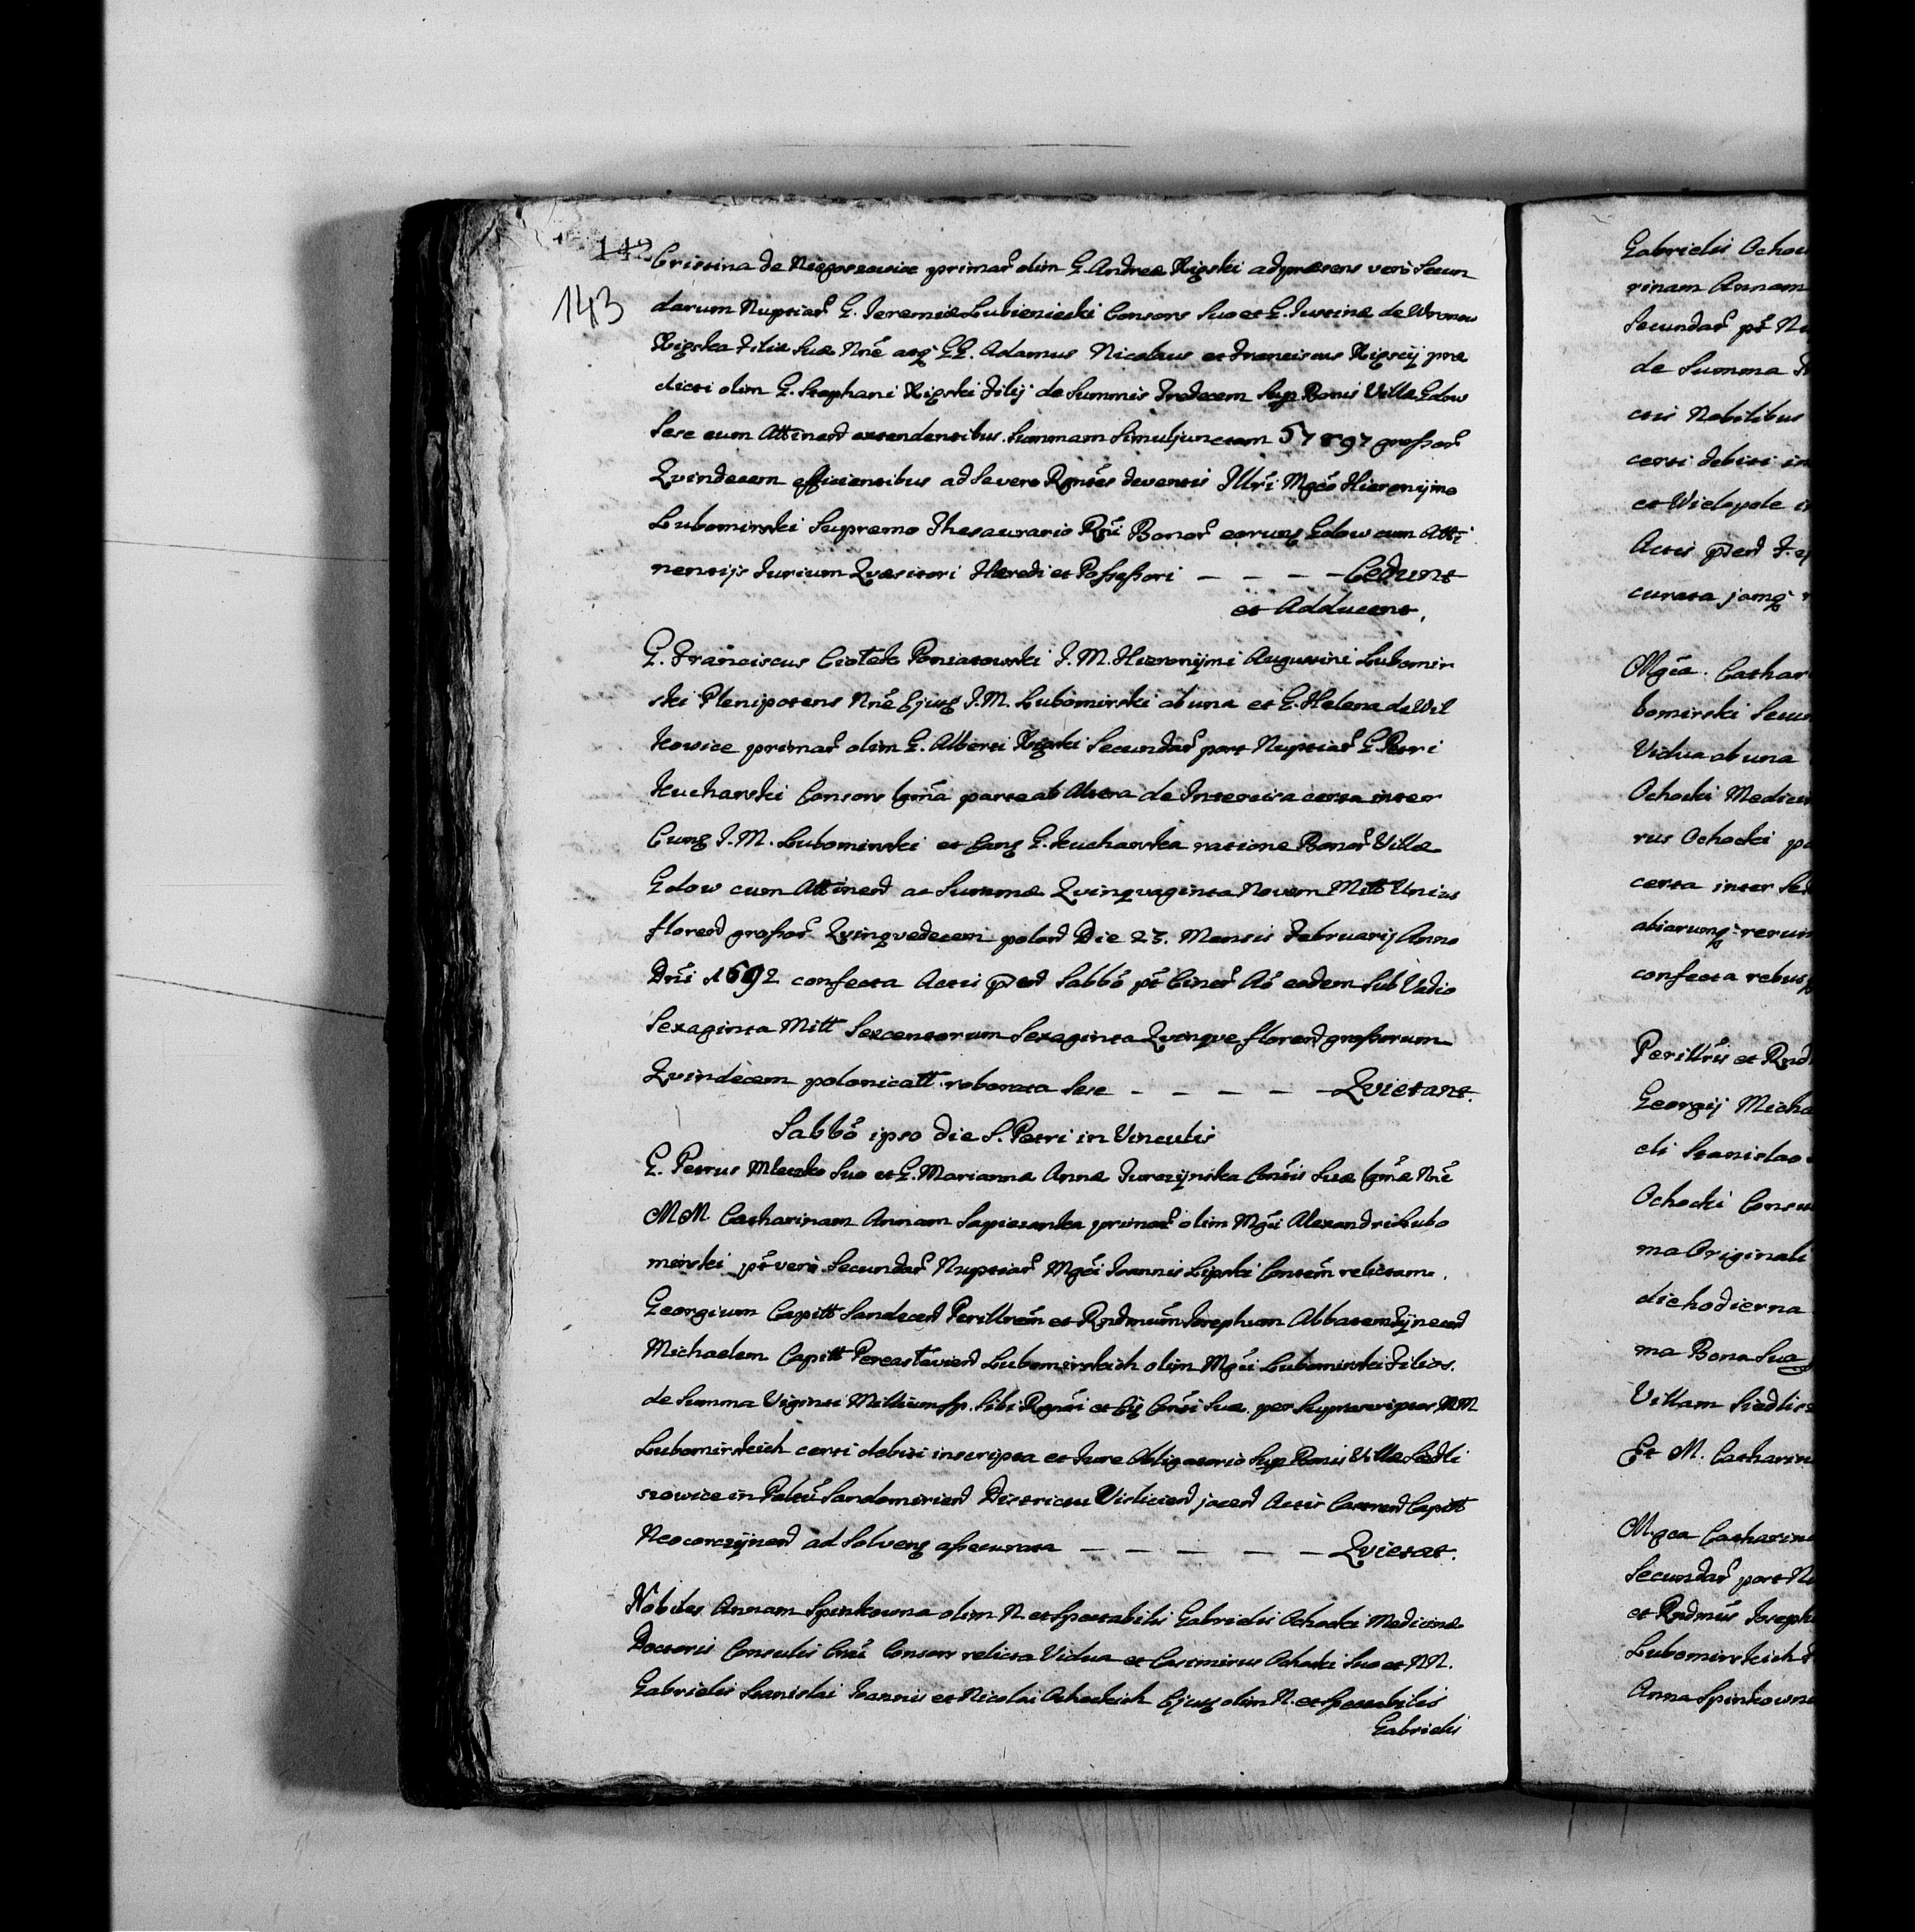 142
143
Cristina de Niegoszowice primar̃ olim G. Andreæ Rigski adpræsens verò Secun
darum Nuptiar̃ G. Jeremiæ Lubieniecki Consors Suo et G. Justinæ de Wronow
Rigska Filiæ Suæ Nñe atq GG. Adamus Nicolaus et Franciscus Rigscij præ
dicti olim G. Stephani Rigski Filij de Summis Tredecem Sup Bonis Villæ Gdow
Sese cum Attinen extendentibus Summam Simuljunctam 57897 grossor̃
Qvindecem efficientibus ad Severo Rgntes deventis Illri Mgco Hieronijmo
Lubomirski Supremo Thesaurario Rni Bonor̃ eorunq Gdow cum Atti
nentijs Jurium Qvæsitori Hæredi et Possessori – – – – Cedunt
et Adducunt.
G. Franciscus Ciołek Poniatowski J. M. Hieronijmi Augustini Lubomir
ski Plenipotens Nñe Ejusq J. M. Lubomirski ab una et G. Helena de Wil
kowice primar̃ olim G. Alberti Rigski Secundar̃ post Nuptiar̃ G. Petri
Kucharski Consors Ipsma parte ab Altera de Intercisa certa inter
Eunq J. M. Lubomirski et Eanq G. Kucharska ratione Bonor̃ Villæ
Gdow cum Attinen ac Summæ Qvinqvaginta Novem Mill Unius
floren grossor̃ Qvinqvedecem polon Die 23. Mensis Februarij Anno
Dni 1692 confecta Actis pñ Sabbo pt Ciner̃ Ao eodem Sub Vadio
Sexaginta Mill Sexcentorum Sexaginta Qvinqve floren grossorum
Qvindecem polonicall roborata Sese – – – – – Qvietant.
Sabbo ipso die S. Petri in Vinculis
G. Petrus Mleczko Suo et G. Mariannæ Annæ Jurczynska Contis Suæ Ipsmæ Nñe
MM Catharinam Annam Sapiezanka primar̃ olim Mgci Alexandri Lubo
mirski pt vero Secundar̃ Nuptiar̃ Mgci Joannis Lipski Contem relictam.
Georgium Capitt Sandecen Perillrem et Rndmum Josephum Abbatem Tynecen
Michaelem Capitt Pereasłavien Lubomirskich olim Mgci Lubomirski Filios.
de Summa Viginti Millium fp. Sibi Rgnti et Ejq Conti Suæ per Suprascriptos MM
Lubomirskich certi debiti inscripta et Jure Obligatorio Sup Bonis Villæ Siedli
szowice in Paltu Sandomirien Districtu Vislicien jacen Actis Castren Capitt
Neocorczynen ad Solvenq assecurata – – – – – Qvietat.
Nobiles Annam Spinkowna olim N. et Spectabilis Gabrielis Ochocki Medicinæ
Doctoris Consulis Crac Consors relicta Vidua et Casimirus Ochocki Suo et NN.
Gabrielis Stanislai Joannis et Nicolai Ochockich Ejusq olim N. et Spectabilis
Gabrielis
Gabrielis Ochoc
rinam Annam
Secundar̃ pt Nu
de Summa
ctis Nobilibus
certi debiti in
et Wielopole i
Actis pñ F. ej
curata jamq
Mgca. Cathar
bomirski Secun
Vidua ab una
Ochocki Medicin
rus Ochocki p
certa inter Se
aliarumq rerum
confecta rebus
Perillris et Rnd
Georgij Micha
cli Stanislao
Ochocki Consu
ma Originali
die hodierna
ma Bona Sua
Villam Siedlis
Et M. Catharin
Mgca Catharina
Secundar̃ post N
et Rndmus Joseph
Lubomirskich
Anna Spinkowna